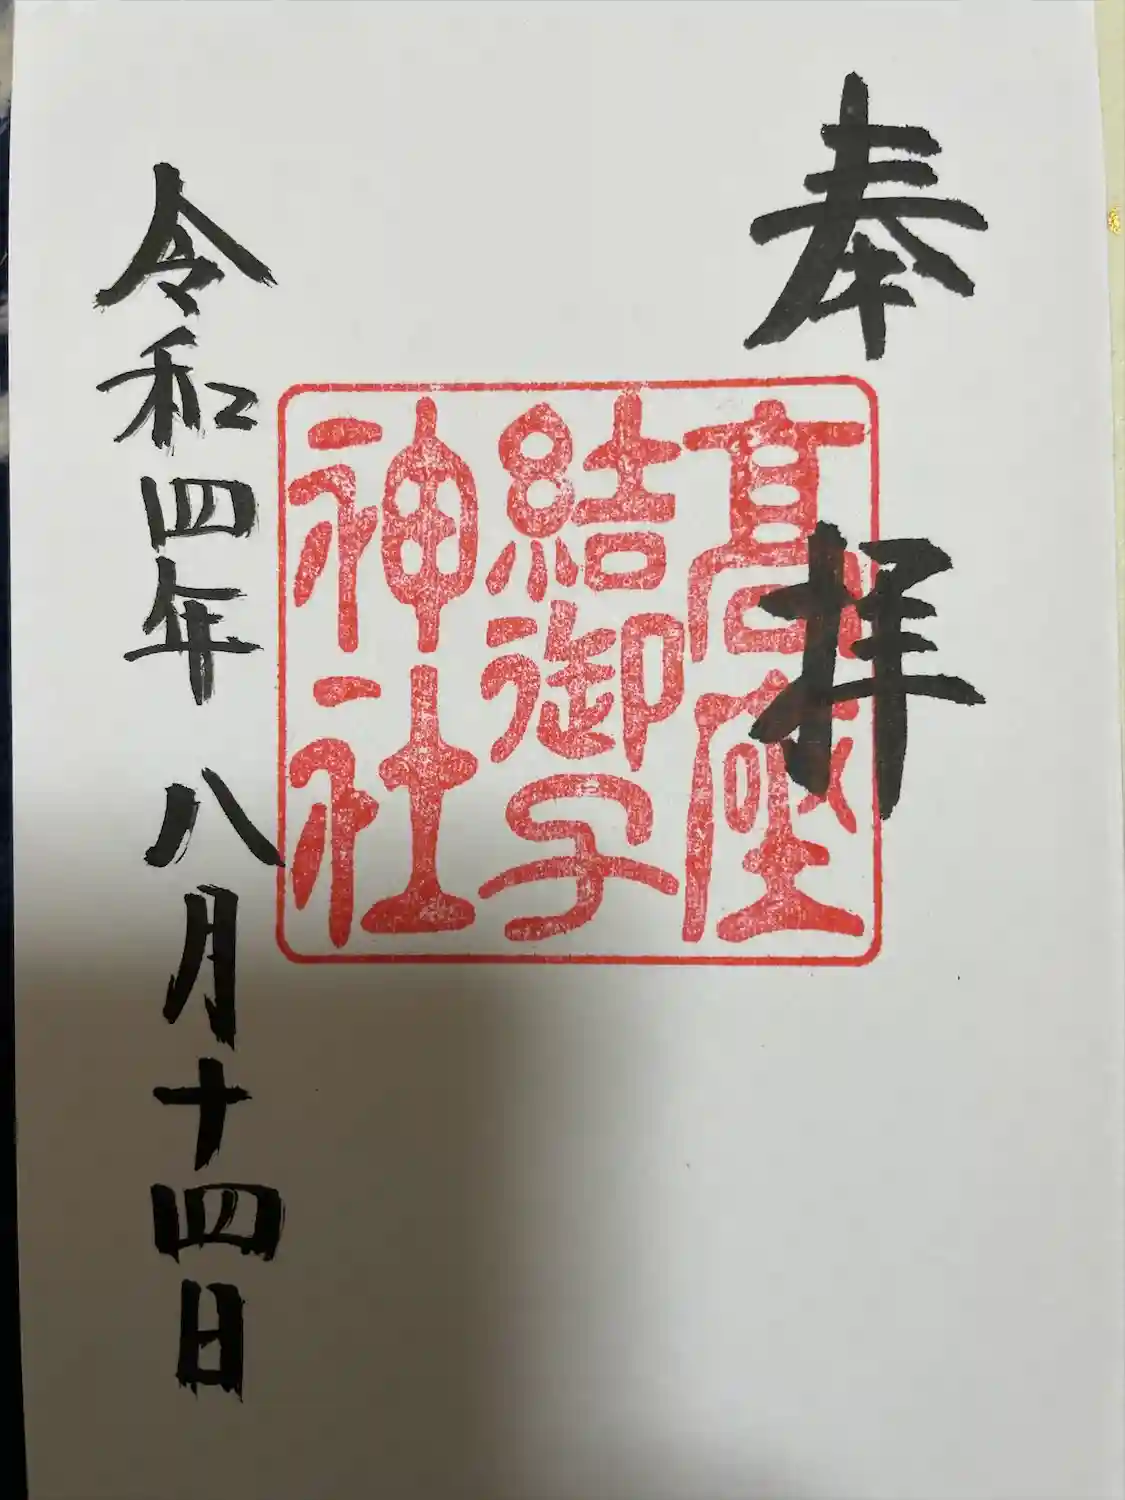 奉拝
髙座
結御子
神社
令和四年八月十四日